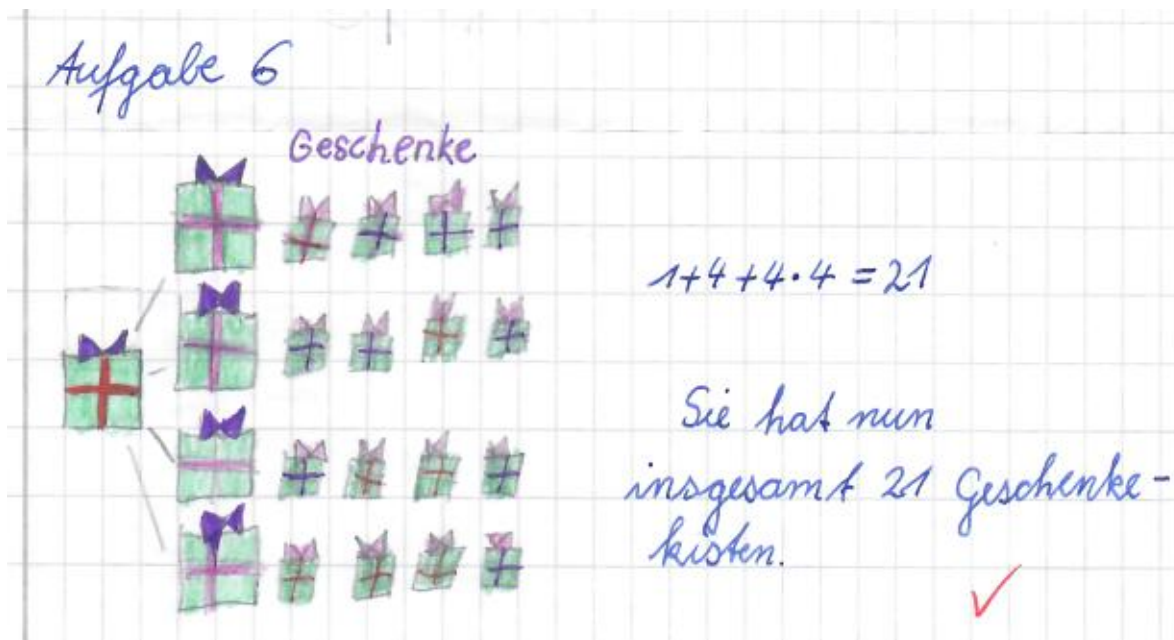 Aufgabe 6
Geschenke
1+4+4·4=21
Sie hat nun
insgesamt 21 Geschenke-
kisten.